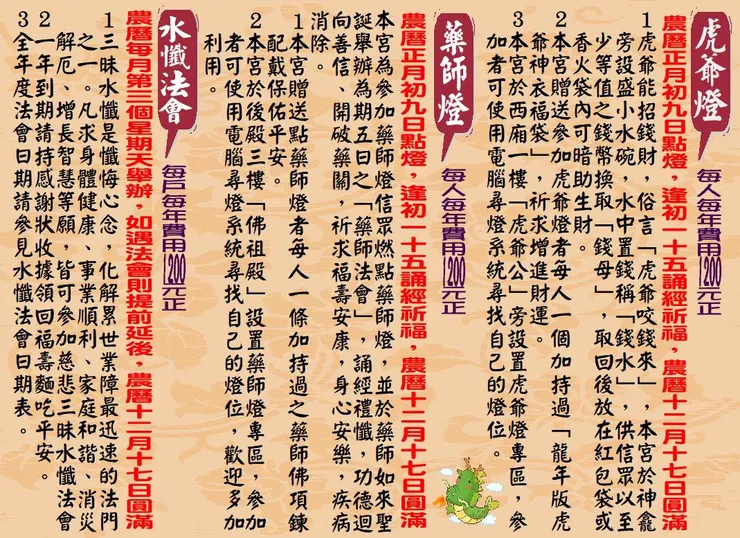 虎爺燈
每人每年費用1200元正
農曆正月初九日點燈，逢初一十五誦經祈福，農曆十二月十七日圓滿
1虎爺能招錢財，俗言「虎爺咬錢來」，本宮於神龕
旁設盛小水碗，水中置錢稱「錢水」，供信眾以至
少等值之錢幣換取「錢母」，取回後放在紅包袋或
香火袋內可暗助生財。
2本宮贈送參加虎爺燈者每人一個加持過「龍年版虎
爺神衣福袋」，祈求增進財運。
3本宮於西廂一樓「虎爺公」旁設置虎爺燈專區，參
加者可使用電腦尋燈系統尋找自己的燈位。
藥師燈
每人每年費用1200元正
農曆正月初九日點燈，逢初一十五誦經祈福，農曆十二月十七日圓滿
本宮為參加藥師燈信眾燃點藥師燈，並於藥師如來聖
誕舉辦為期五日之「藥師法會」，誦經禮懺，功德迴
向善信、開破藥關，祈求福壽安康，身心安樂，疾病
消除。
1本宮贈送點藥師燈者每人一條加持過之藥師佛項鍊
配戴保佑平安。
2本宮於後殿三樓「佛祖殿」設置藥師燈專區，參加
者可使用電腦尋燈系統尋找自己的燈位，歡迎多加
利用。
水懺法會
每戶每年費用1200元正
農曆每月第三個星期天舉辦，如遇法會則提前延後，農曆十二月十七日圓滿
1三昧水懺是懺悔心念，化解累世業障最迅速的法門
之一。凡求身體健康、事業順利、家庭和諧、消災
解厄、增長智慧等願，皆可參加慈悲三昧水懺法會
2一年到期請持感謝狀收據領回福壽麵吃平安。
3全年度法會日期請參見水懺法會日期表。